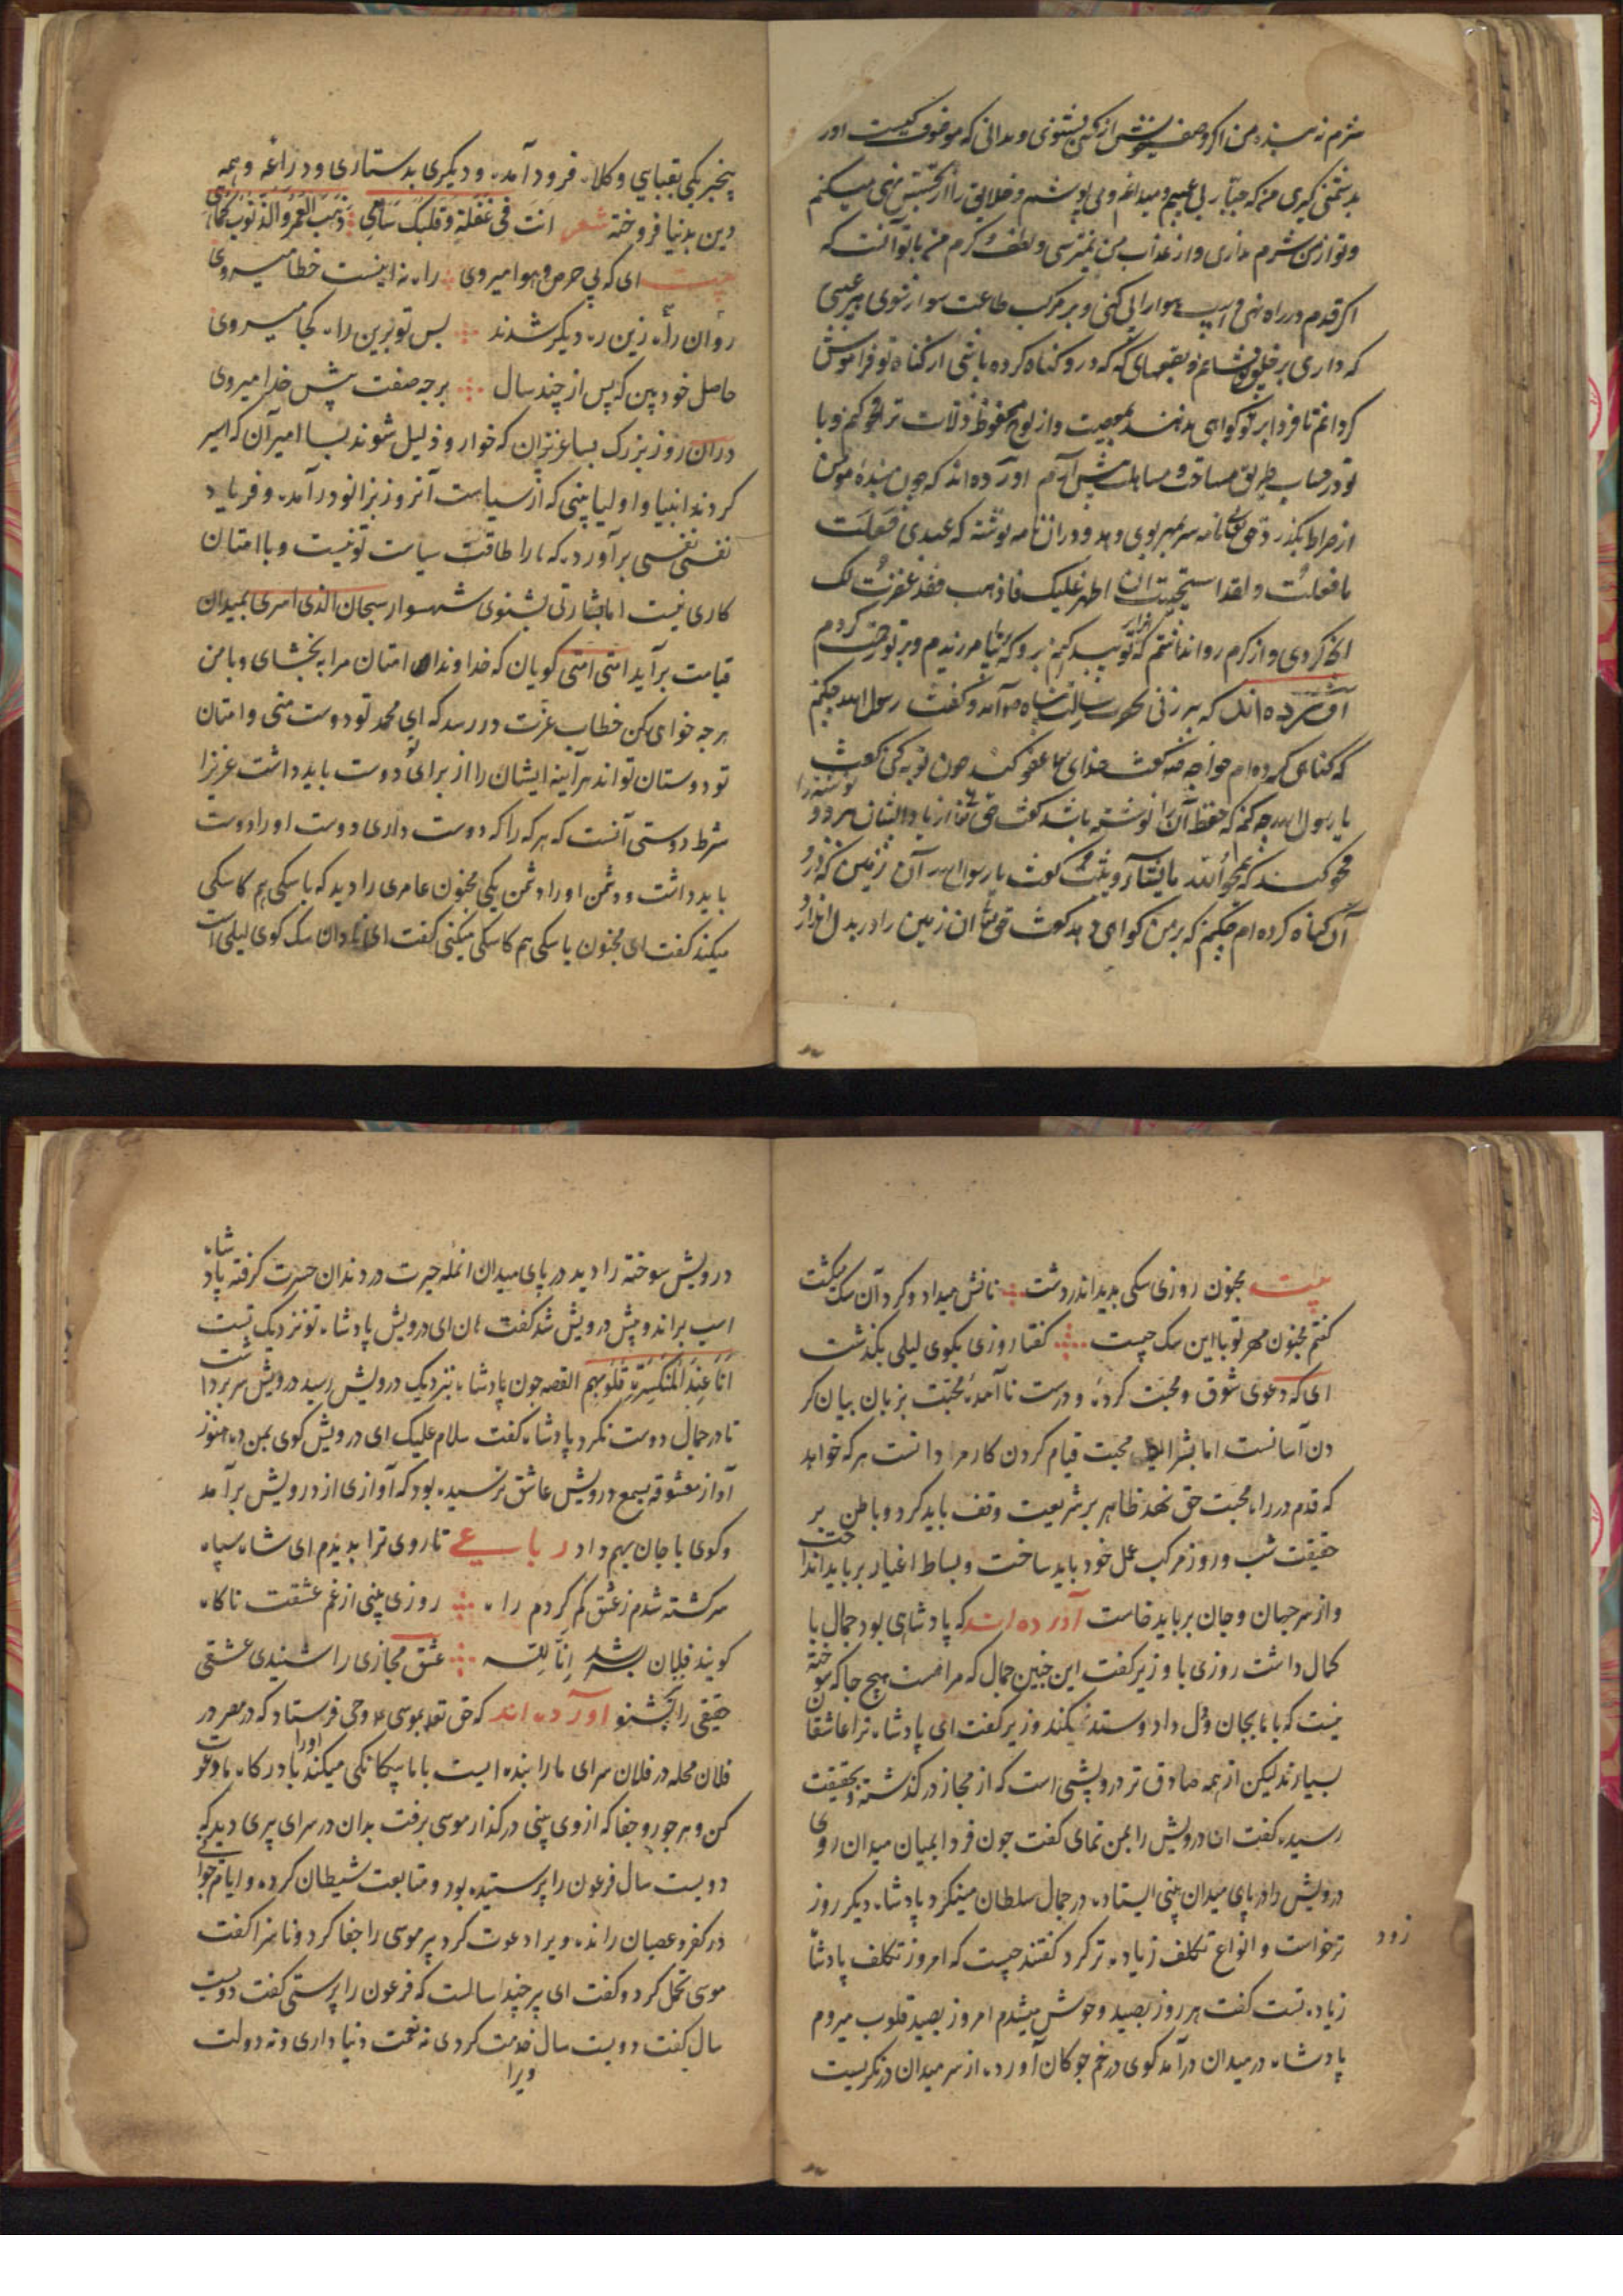 شرم نه بنده من اگر وصف خویش از کسی بشنوی و ندانی که موصوف کیست اورا
بدشمنی گیری من که جبارم می بینم و میدانم و می پوشم و خلایق را از تجسس نهی میکنم
و تو از من شرم نداری و از عذاب من نمیترسی و لطف و کرم من با تو آنست که
اگر قدم در راه نهی و اسپ هوا را پی کنی و بر مرکب طاعت سوار شوی هر عیبی
که داری بر خلق بپوشانم و بقعهای که در و گناه کرده باشی از گناه تو فراموش
گردانم تا فردا بر تو گواهی ندهند بمعصیت و از لوح محفوظ زلات ترا محو کنم و با
تو در حساب طریق مسامحت و مساهلت پیش آرم آورده اند که چون بنده مومن
از صراط بگذرد حق تعالی نامه سربمهر بوی دهد و در ان نامه نوشته که عبدی فعلت
ما فعلت و لقد استحییت ان اظهر علیک فاذهب فقد غفرت لک
انچه کردی و از کرم روا نداشتم که بتو پدید کنم برو که بیامرزیدم و بر تو رحمت کردم
آورده اند که پیرزنی بحضرت رسالت پناه ص آمد و گفت رسول الله چکنم
که گناهی کرده ام خواجه ص گفت خدای تعا عفو کند چون توبه کنی گفت
یا رسول الله چه کنم که حفظه آن را نوشته باشد گفت حق تعا از یاد ایشان برد و نوشته را
محو کند که یمحو الله ما یشاء و یثبت گفت یا رسول الله آن زمین که در و
آن گناه کرده ام چکنم که بر من گواهی دهد گفت حق تعا ان زمین را در بدل اندازد
پیخبر یکی بقبایی و کلاه فرود آمده و دیگری بدستاری و دراعه و همه
دین بدنیا فروخته شعر انت فی غفلة و قلبک ساهی ذهب العمر و الذنوب کماهی
بیت ای که پی حرص و هوا میروی راه نه اینست خطا میروی
روان راه زین ره دیگر شدند بس تو برین راه کجا میروی
حاصل خود بین که پس از چند سال برچه صفت پیش خدا میروی
دران روز بزرگ بسا عزیزان که خوار و ذلیل شوند بسا امیران که اسیر
گردند انبیا و اولیا بینی که از سیاست آنروز بزانو در آمده و فریاد
نفسی نفسی برآورده که مارا طاقت سیاست تو نیست و با امتان
کاری نیست اما بشارتی بشنوی شهسوار سبحان الذی اسری بمیدان
قیامت برآید امتی امتی گویان که خداوندا امتان مرا به بخشای و با من
هرچه خواهی بکن خطاب عزت در رسد که ای محمد تو دوست منی و امتان
تو دوستان تواند هرآینه ایشان را از برای تو دوست باید داشت عزیزا
شرط دوستی آنست که هرکه را که دوست داری دوست او را دوست
باید داشت و دشمن او را دشمن یکی مجنون عامری را دید که با سکی هم کاسکی
میکند گفت ای مجنون با سکی هم کاسکی میکنی گفت ای نادان سک کوی لیلی است
بیت مجنون روزی سکی بدید اندر دشت نانش میداد و گرد آن سک میگشت
گفتم مجنون مهر تو با این سک چیست گفتا روزی بکوی لیلی بگذشت
ای که دعوی شوق و محبت کرده و درست نا آمده محبت بزبان بیان کر
دن آسانست اما بشرایط محبت قیام کردن کار مردانست هرکه خواهد
که قدم در راه محبت حق نهد ظاهر بر شریعت وقف باید کرد و باطن بر
حقیقت شب و روز مرکب عمل خود باید ساخت و بساط اغیار بر باید انداخت
و از سر جهان و جان بر باید خاست آورده اند که پادشاهی بود جمال با
کمال داشت روزی با وزیر گفت این چنین جمال که مراهست هیچ جا که سوخته
نیست که با ما بجان و دل داد و ستد نمیکند وزیر گفت ای پادشاه ترا عاشقان
بسیارند لیکن از همه صادق تر درویشی است که از مجاز در گذشته و بحقیقت
رسیده گفت ان درویش را بمن نمای گفت چون فردا بمیان میدان روی
درویش را در پای میدان بینی ایستاده در جمال سلطان مینگرد پادشاه دیگر روز
زود
ترخواست و انواع تکلف زیاده تر کرد گفتند چیست که امروز تکلف پادشاه
زیاده تست گفت هر روز بصید وحوش میشدم امروز بصید قلوب میروم
پادشاه در میدان درآمد کوی در خم چوکان آورده از سر میدان در نگریست
درویش سوخته را دید در پای میدان انمله حیرت در دندان حسرت گرفته پادشاه
اسپ براند و پیش درویش شد گفت هان ای درویش پادشاه تو نزدیک تست
انا عند المنکسرة قلوبهم القصه چون پادشاه بنزدیک درویش رسید درویش سر برداشت
تا در جمال دوست نگرد پادشاه گفت سلام علیک ای درویش گوی بمن ده هنوز
آواز معشوقه بسمع درویش عاشق نرسیده بود که آوازی از درویش برآمد
و گوی با جان بهم داد رباعی تا روی ترا بدیدم ای شاه سپاه
سرگشته شدم ز عشق گم کردم راه روزی بینی از غم عشقت ناگاه
گویند فلان بشد انا لله عشق مجازی را شنیدی عشقی
حقیقی را بشنو آورده اند که حق تعا بموسی ع وحی فرستاد که در مصر در
فلان محله در فلان سرای مارا بنده ایست باما بیکانکی میکند اورا بادرگاه ما دعوت
کن و هر جور و جفا که از وی بینی در گذار موسی برفت بدان در سرای پیری دید که
دویست سال فرعون را پرستیده بود و متابعت شیطان کرده و ایام جوانی
در کفر و عصیان رانده ویرا دعوت کرد پیر موسی را جفا کرد و ناسزا گفت
موسی تحمل کرد و گفت ای پیر چند سالست که فرعون را پرستی گفت دویست
سال گفت دویست سال خدمت کردی نه نعمت دنیا داری و نه دولت
ویرا